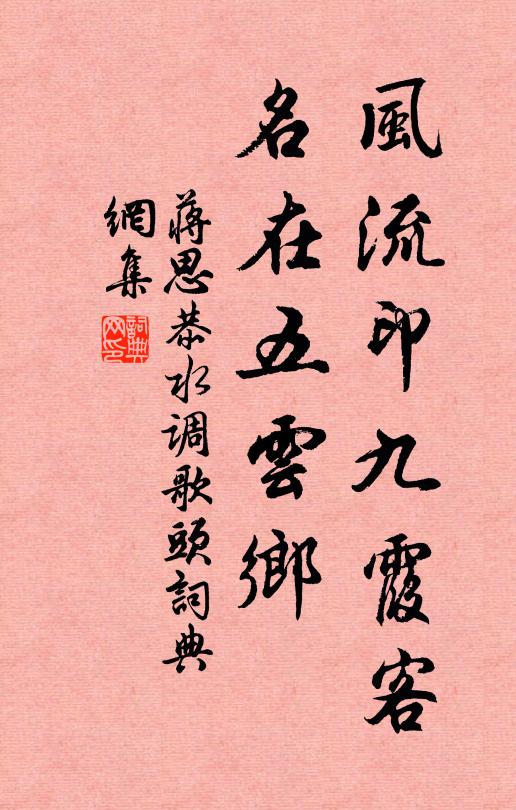 風流印九霞客
名在五雲鄉
蔣思恭水调歌頭詞典
網集
詞典
网印